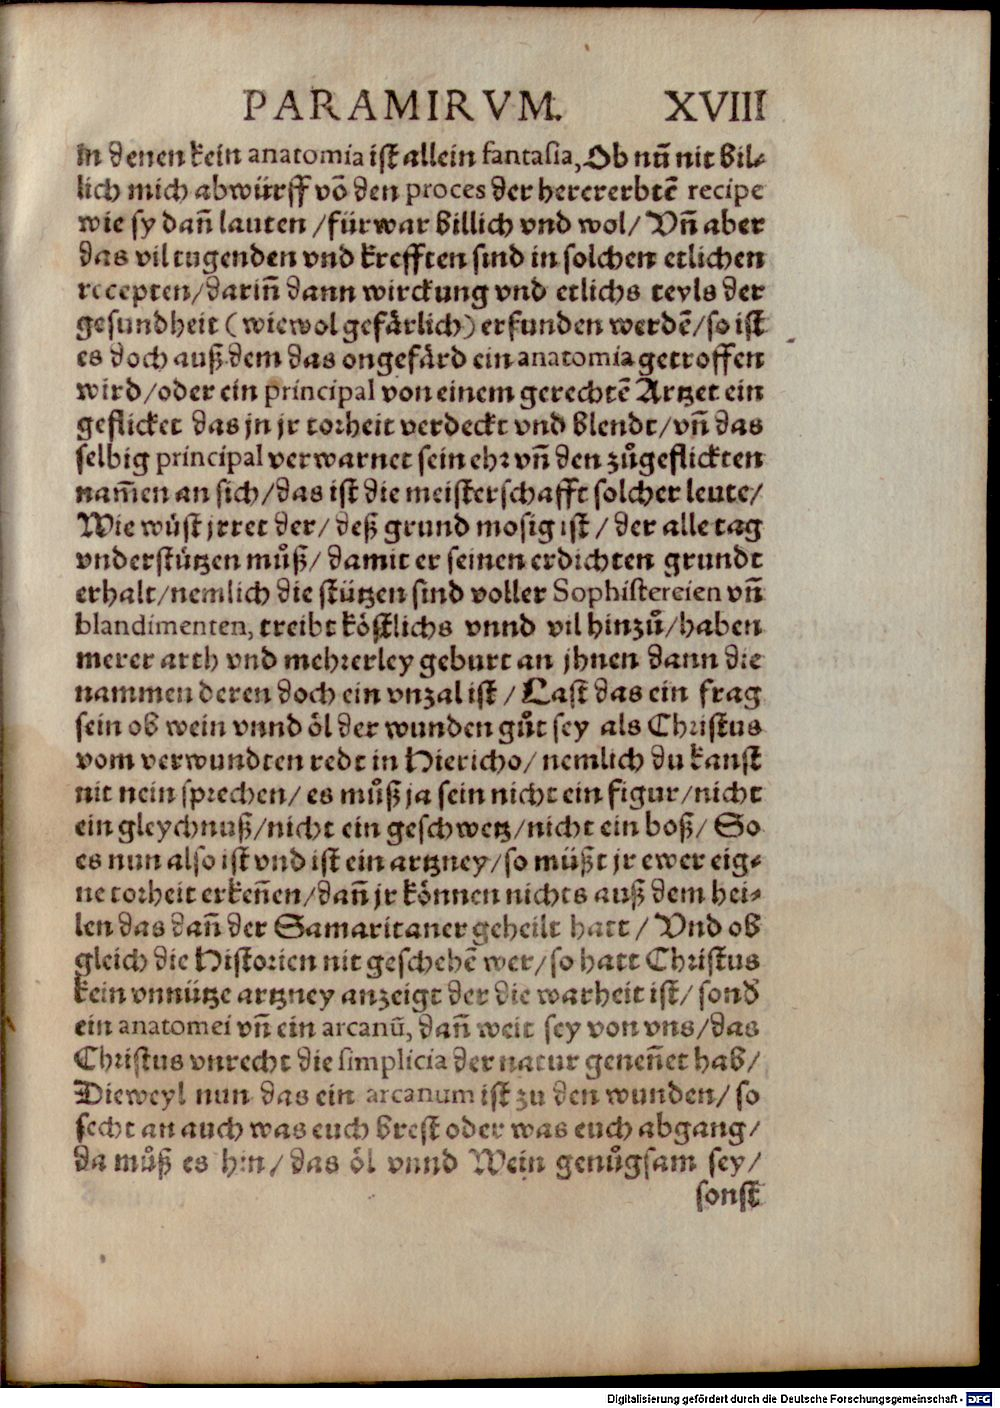 PARAMIRVM. XVIII
in denen kein anatomia ist allein fantasia, Ob nũ nit bil-
lich mich abwürff võ den proces der herererbtẽ recipe
wie sy dañ lauten /fürwar billich vnd wol/ Vñ aber
das vil tugenden vnd krefften sind in solchen etlichen
recepten/dariñ dann wirckung vnd etlichs teyls der
gesundheit (wiewol gefärlich) erfunden werdẽ/so ist
es doch auß dem das ongefärd ein anatomia getroffen
wird/oder ein principal von einem gerechtẽ Artzet ein
geflicket das jn jr torheit verdeckt vnd blendt/vñ das
selbig principal verwarnet sein ehr vñ den zůgeflickten
nam̃en an sich/das ist die meisterschafft solcher leute/
Wie wůst jrret der/ deß grund mosig ist / der alle tag
vnderstützen můß/ damit er seinen erdichten grundt
erhalt/nemlich die stützen sind voller Sophistereien vñ
blandimenten, treibt köstlichs vnnd vil hinzů/haben
merer arth vnd mehrerley geburt an jhnen dann die
nammen deren doch ein vnzal ist / Last das ein frag
sein ob wein vnnd öl der wunden gůt sey als Christus
vom verwundten redt in Hiericho/ nemlich du kanst
nit nein sprechen/ es můß ja sein nicht ein figur/nicht
ein gleychnuß/nicht ein geschwetz/nicht ein boß/ So
es nun also ist vnd ist ein artzney/so müßt jr ewer eig-
ne torheit erkeñen/dañ jr können nichts auß dem hei-
len das dañ der Samaritaner geheilt hatt/ Vnd ob
gleich die Historien nit geschehẽ wer/so hatt Christus
kein vnnütze artzney anzeigt der die warheit ist/ sond
ein anatomei vñ ein arcanũ, dañ weit sey von vns/das
Christus vnrecht die simplicia der natur geneñet hab/
Dieweyl nun das ein arcanum ist zu den wunden/ so
secht an auch was euch brest oder was euch abgang/
da můß es hin/ das öl vnnd Wein genůgsam sey/
sonst
Digitalisierung gefördert durch die Deutsche Forschungsgemeinschaft - DFG